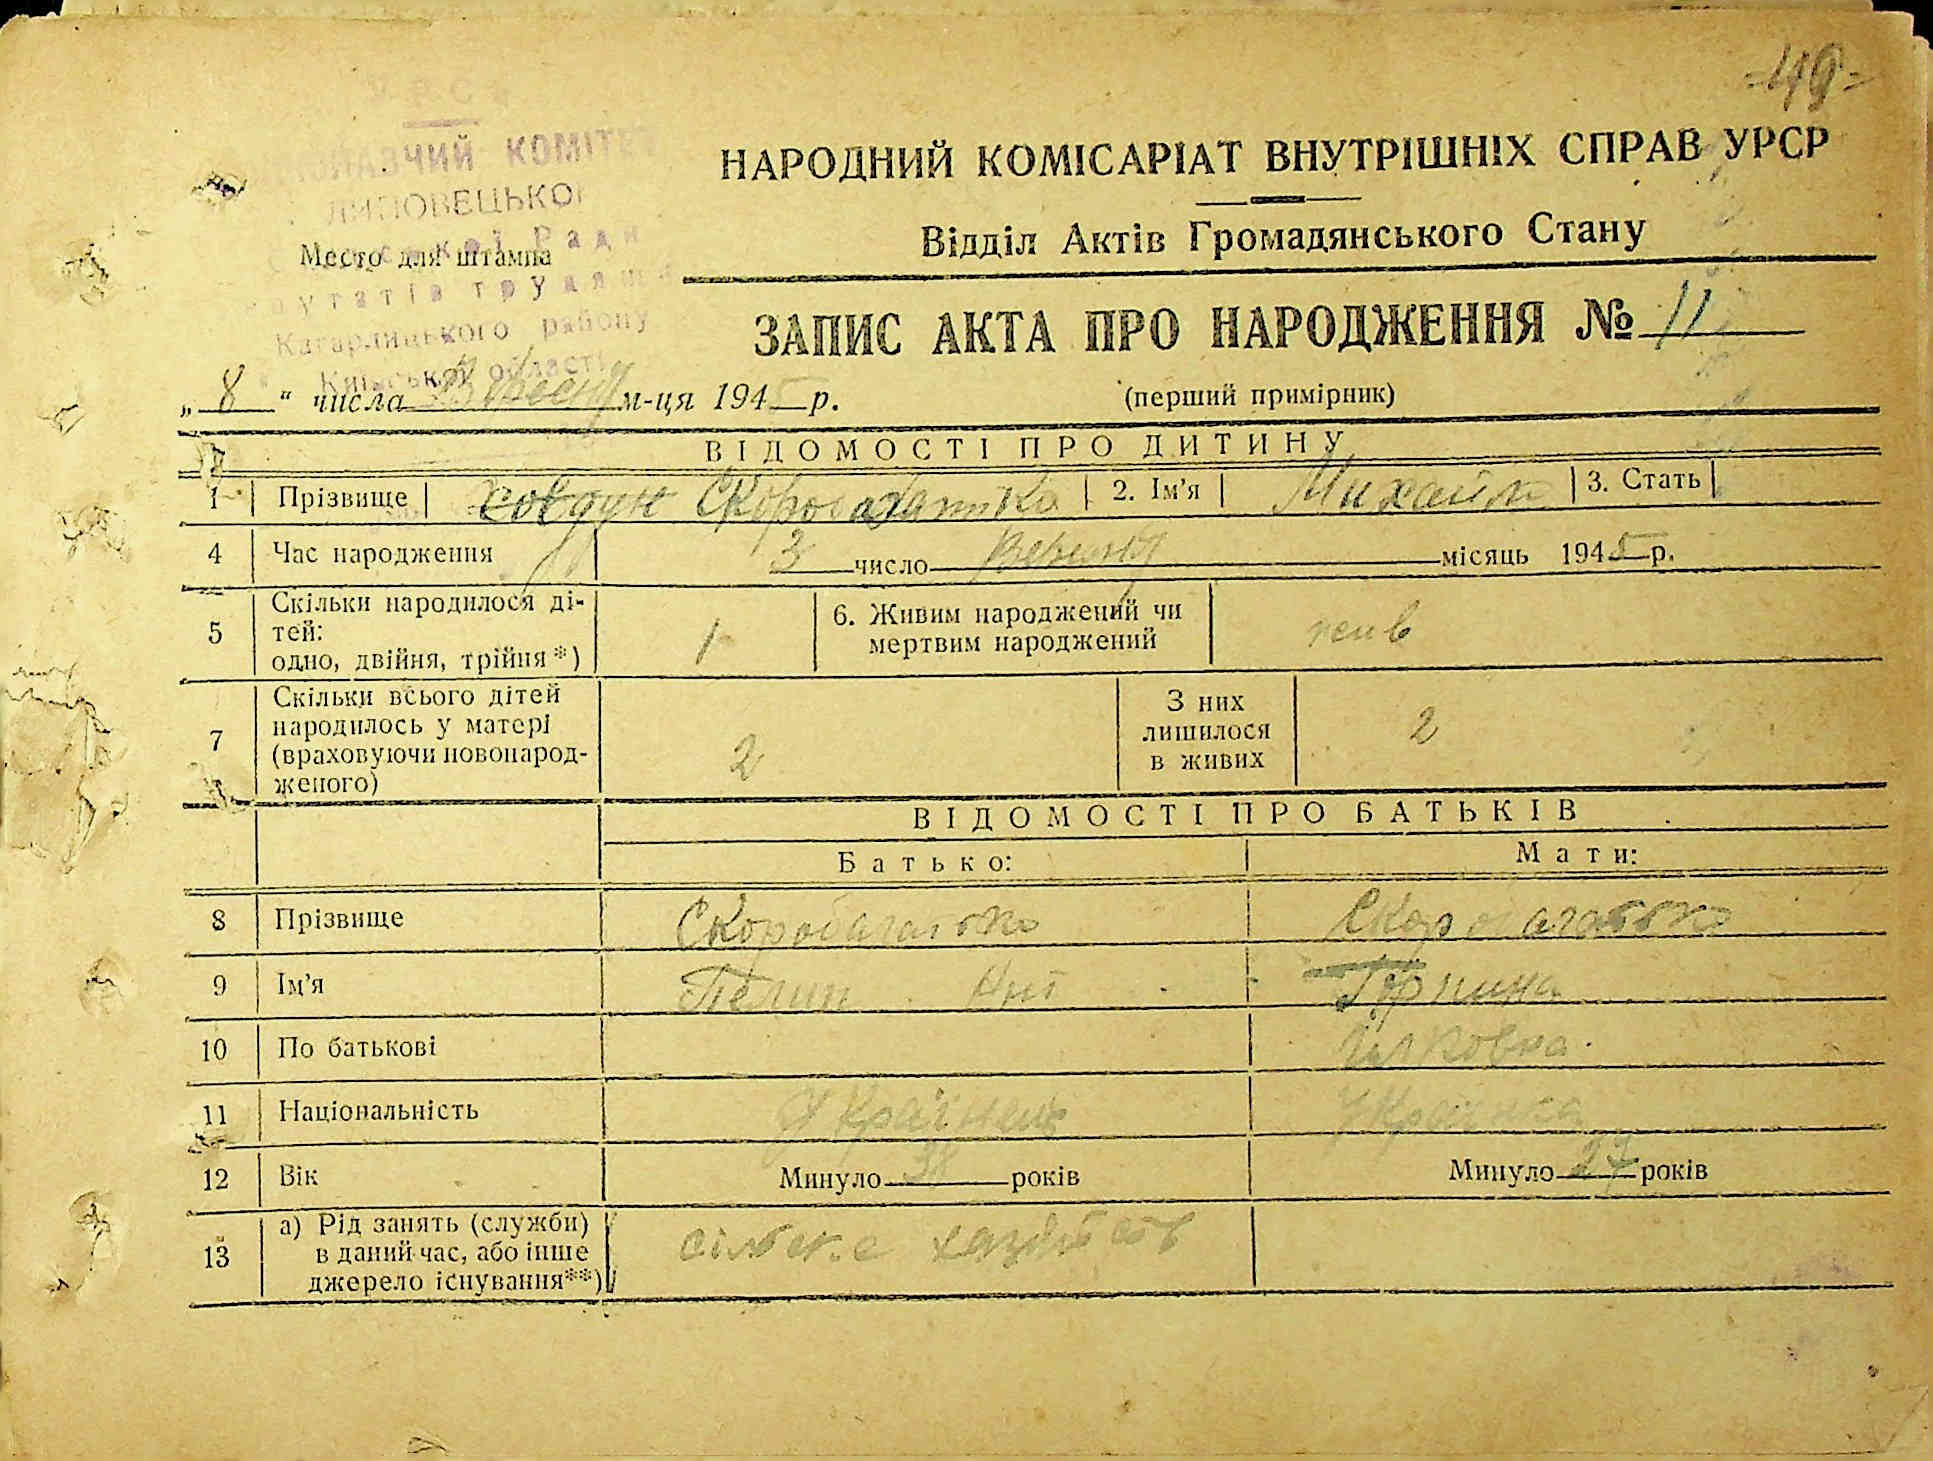 -49-
УРСР
ВИКОНАВЧИЙ КОМІТЕТ
ЛИПОВЕЦЬКОЇ
Сільської Ради
депутатів трудящих
Кагарлицького району
Київської області
Место для штампа
НАРОДНИЙ КОМІСАРІАТ ВНУТРІШНІХ СПРАВ УРСР
Відділ Актів Громадянського Стану
ЗАПИС АКТА ПРО НАРОДЖЕННЯ № 11
„ 8 “ числа Вересня м-ця 1945 р.
(перший примірник)
ВІДОМОСТІ ПРО ДИТИНУ
1 Прізвище Ховдун Скоробагатько 2. Ім'я Михайло 3. Стать
4 Час народження 3 число Вересня місяць 1945 р.
5 Скільки народилося ді-
тей:
одно, двійня, трійня*) 1
6. Живим народжений чи
мертвим народжений жив
7 Скільки всього дітей
народилось у матері
(враховуючи новонарод-
женого) 2
З них
лишилося
в живих 2
ВІДОМОСТІ ПРО БАТЬКІВ
Батько: Мати:
8 Прізвище Скоробагатько Скоробагатько
9 Ім'я Пелип Горпина
10 По батькові
11 Національність Українець Українка
12 Вік Минуло років Минуло 27 років
13 а) Рід занять (служби)
в даний час, або інше
джерело існування**)